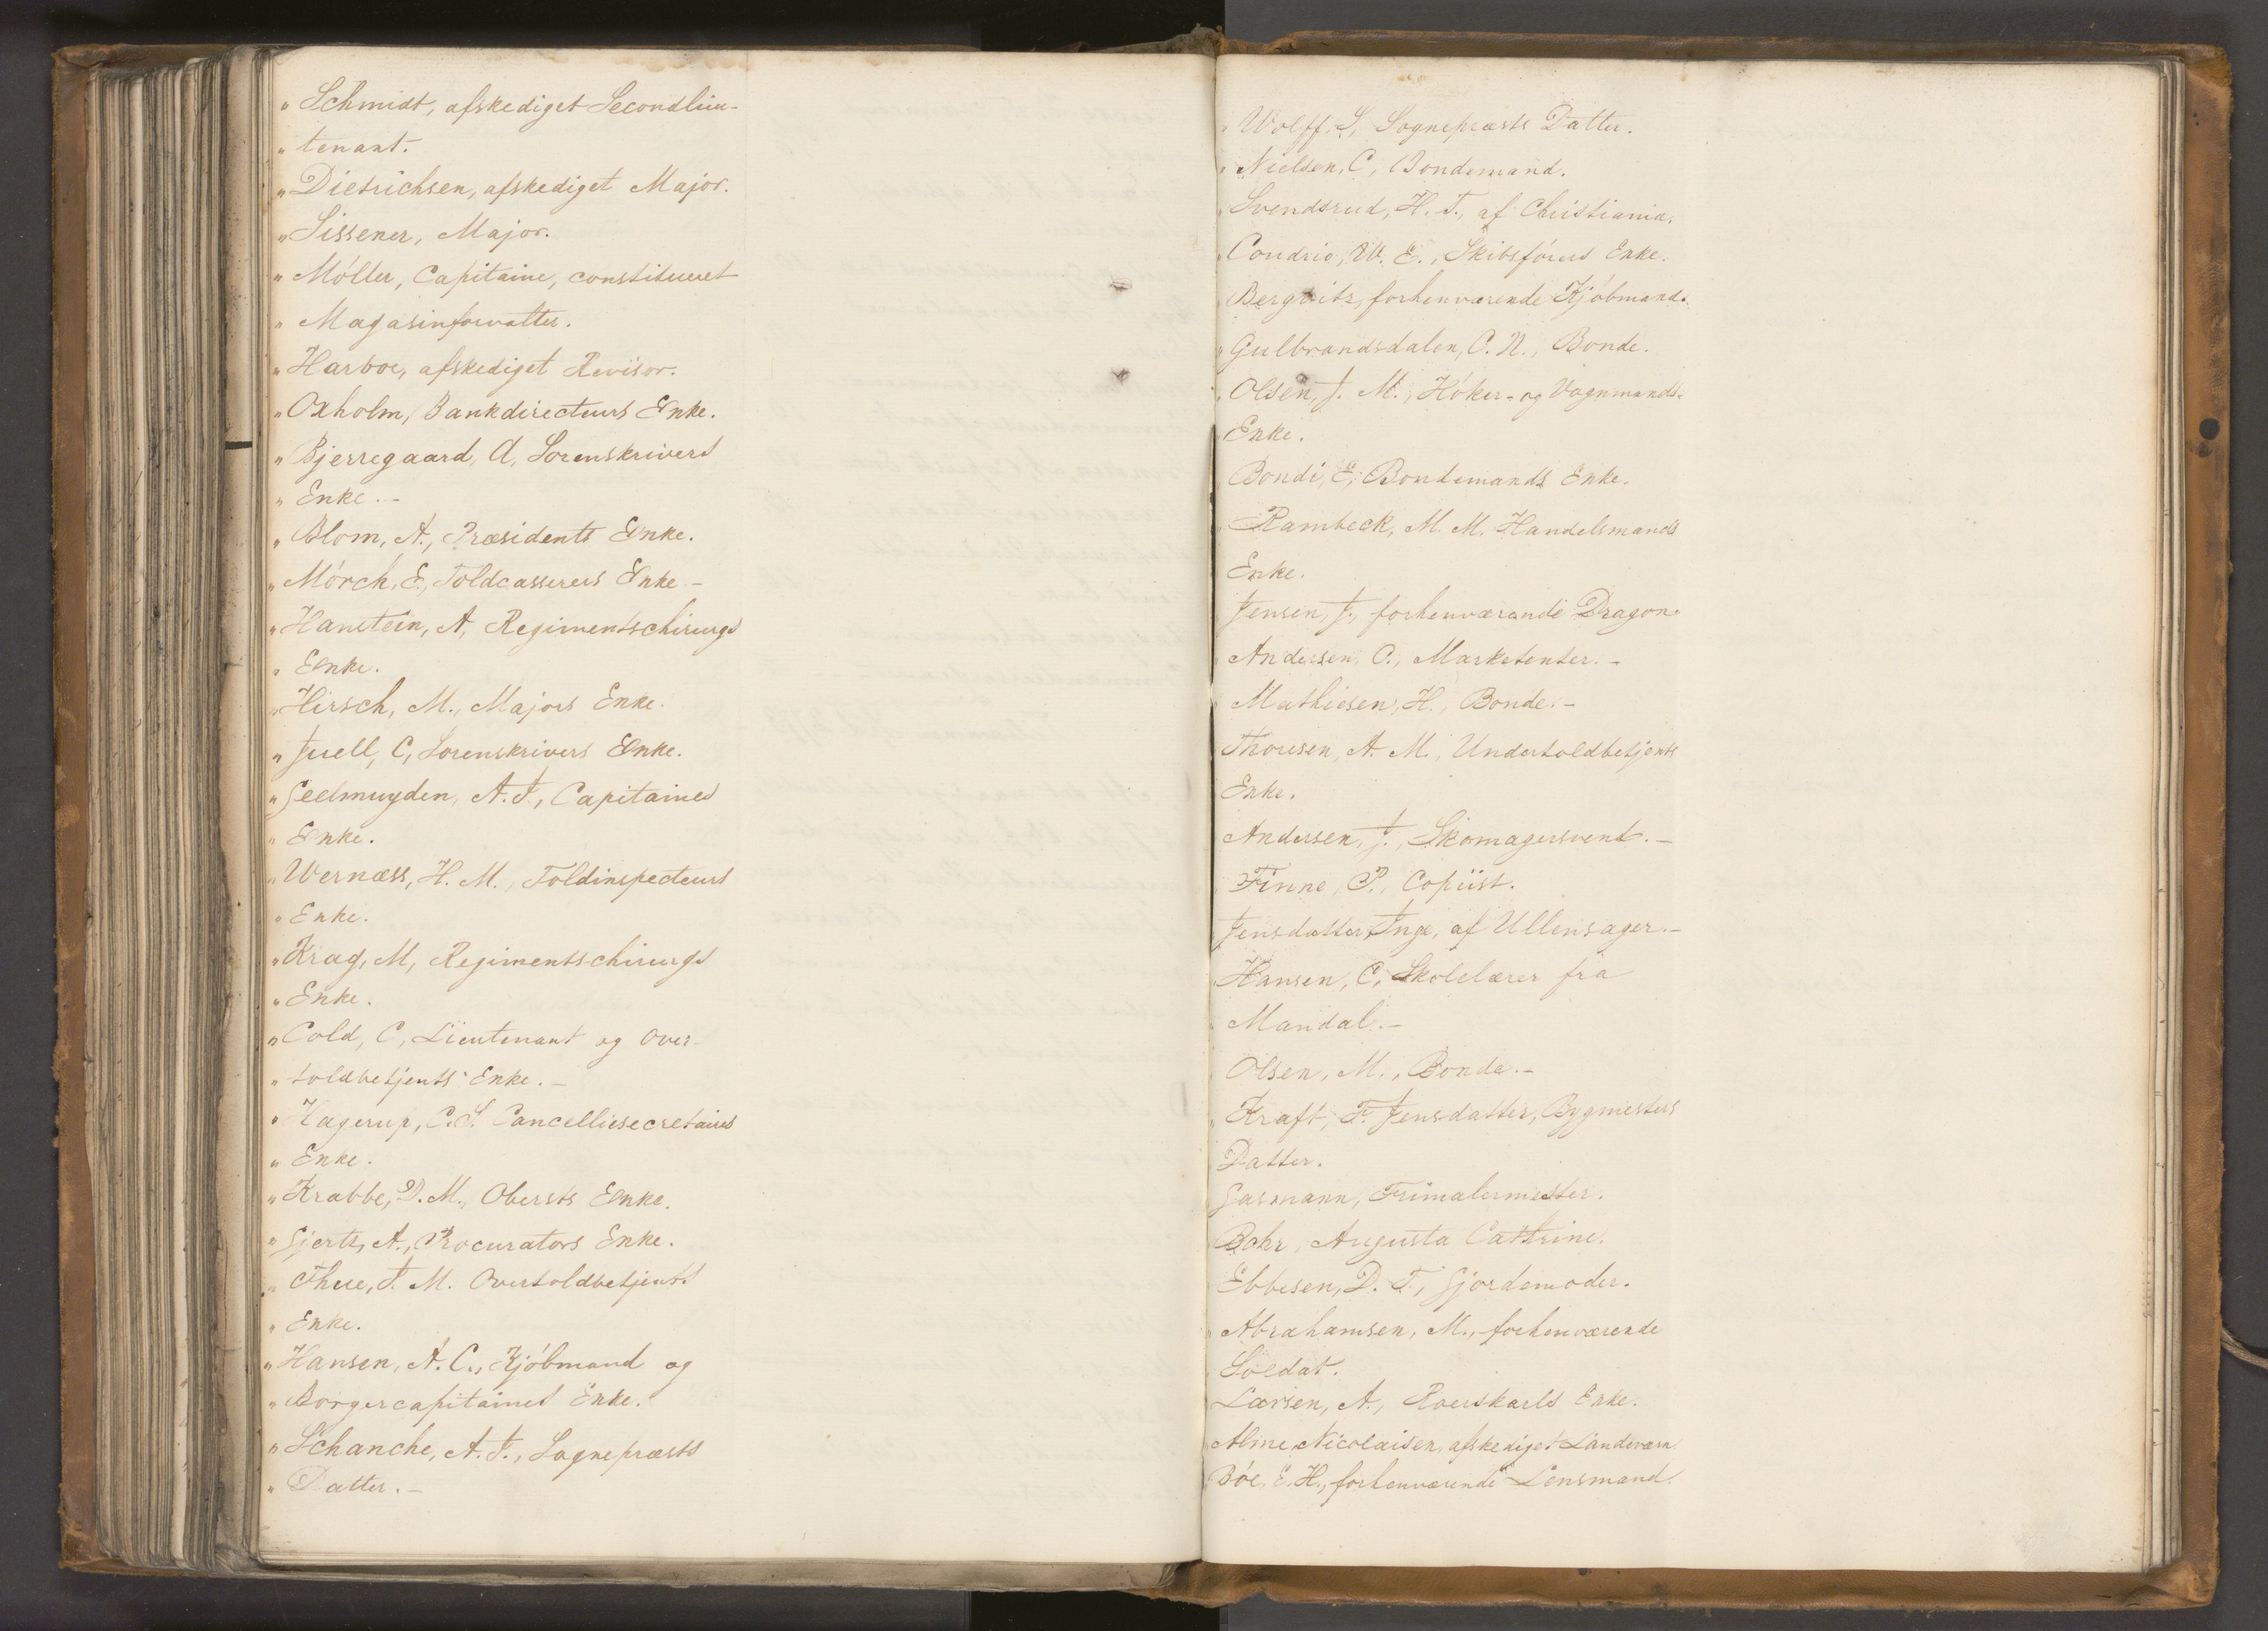 " Schmidt, afskediget Secondlieu-
" tenant.
" Dietrichsen, afskediget Major.
" Sissener, Major.
" Móller, Capitaine, constitueret
" Magasinforvalter.
" Harboe, afskediget Revisor.
" Oxholm, Bankdirecteurs Enke.
" Bjerregaard, A, Sorenskrivers
" Enke.-
" Blom, A., Præsidents Enke.
" Mórch, E., Toldcasserers Enke.-
" Hanstein, A, Regimentschirurgs
" Enke.
" Hirsch, M., Majors Enke.
" Juell, C, Sorenskrivers Enke.
" Geelmuyden, A. J., Capitaines
" Enke.
" Wernæss, H. M., Toldinspecteurs
" Enke.
" Krag, M, Regimentschirurgs
" Enke.
" Cold, C, Lieutenant og Over-
" toldbetjents Enke.-
" Hagerup, C. S. Cancelliesecretaires
" Enke.
" Krabbe, D. M., Obersts Enke.
" Gjertz, A., Procurators Enke.
" Thue, J. M. Overtoldbetjents
" Enke.
" Hansen, A. C., Kjóbmand og
" Borgercapitaines Enke.
" Schanche, A. J., Sognepræsts
" Datter.-
" Wolff. S, Sognepræsts Datter.
" Nielsen, C, Bondemand.
" Svendsrud, H. T., af Christiania.
" Condrio, W. E., Skibsfórers Enke.
Bergwitz, forhenværende Kjóbmand.
" Gulbrandsdalen, O. N., Bonde.
" Olsen, J. M., Hóker- og Vognmands-
Enke.
Bondi, E, Bondemands Enke.
" Rambeck, M. M. Handelsmands
Enke.
Jensen, J., forhenværende Dragon.
Andersen, O., Marketenter.-
Mathiesen, H., Bonde.-
Thoresen, A. M., Undertoldbetjents
Enke.
Andersen, J., Skomagersvend.-
Finne, P., Copiist.
Jensdatter, Inge, af Ullensager.-
Hansen, C, Skolelærer fra
Mandal.-
Olsen, M., Bonde.-
Kraft, F. Jensdatter, Bygmesters
Datter.
Gasmann, Frimalermester.
Bohr, Augusta Cathrine.
Ebbesen, D. T., Gjordemoder.
" Abrahamsen, M., forhenværende
Soldat.
Larsen, A., Roerskarls Enke.
Alme, Nicolaisen, afskediget Landeværn
Bóe, E. H., forhenværende Lensmand.